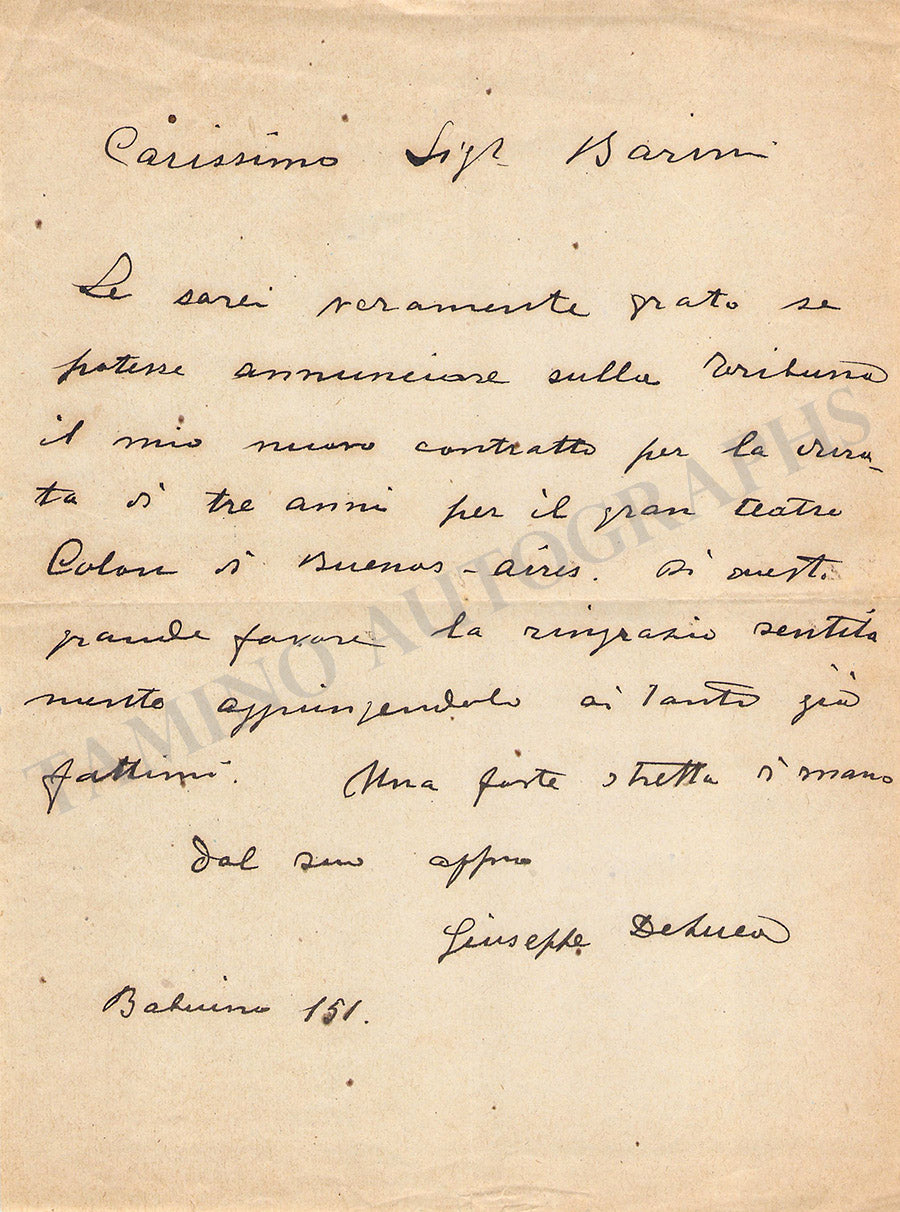 Carissimo Sigr Barini
Le sarei veramente grato se
potesse annunciare sulla Tribuna
il mio nuovo contratto per la dura-
ta di tre anni per il gran teatro
Colon di Buenos-aires. Di questo
grande favore la ringrazio sentita
mente aggiungendolo ai tanti già
fattimi. Una forte stretta di mano
dal suo affmo
Giuseppe DeLuca
Babuino 151.
TAMINO AUTOGRAPHS